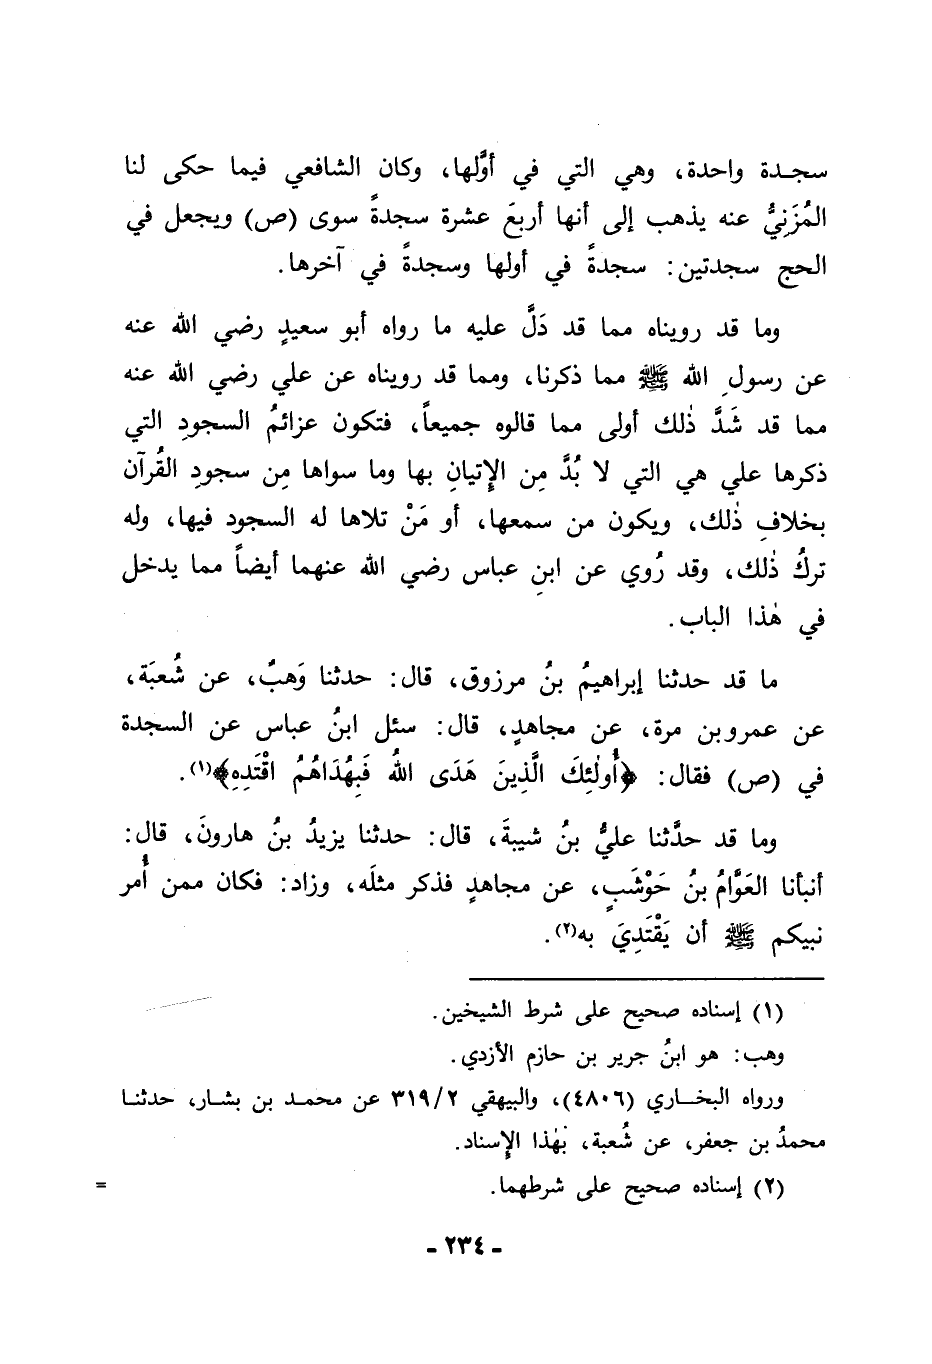 سجـدة واحدة، وهي التي في أوَّلها، وكان الشافعي فيما حكى لنا
المُزَنِيُّ عنه يذهب إلى أنها أربعَ عشرة سجدةً سوى (ص) ويجعل في
الحج سجدتين: سجدةً في أولها وسجدةً في آخرها.
وما قد رويناه مما قد دَلَّ عليه ما رواه أبو سعيدٍ رضي الله عنه
عن رسولِ الله ﷺ مما ذكرنا، ومما قد رويناه عن علي رضي الله عنه
مما قد شَدَّ ذٰلك أولى مما قالوه جميعاً، فتكون عزائمُ السجودِ التي
ذكرها علي هي التي لا بُدَّ مِن الإِتيانِ بها وما سواها مِن سجودِ القُرآن
بخلافِ ذٰلك، ويكون من سمعها، أو مَنْ تلاها له السجود فيها، وله
تركُ ذٰلك، وقد رُوي عن ابنِ عباس رضي الله عنهما أيضاً مما يدخل
في هٰذا الباب.
ما قد حدثنا إبراهيمُ بنُ مرزوق، قال: حدثنا وَهبٌ، عن شُعبَة،
عن عمروبن مرة، عن مجاهدٍ، قال: سئل ابنُ عباس عن السجدة
في (ص) فقال: ﴿أُولٰئِكَ الَّذِينَ هَدَى اللهُ فَبِهُدَاهُمُ اقْتَدِهِ﴾(١).
وما قد حدَّثنا عليُّ بنُ شيبةَ، قال: حدثنا يزيدُ بنُ هارونَ، قال:
أنبأنا العَوَّامُ بنُ حَوْشَبٍ، عن مجاهدٍ فذكر مثلَه، وزاد: فكان ممن أُمر
نبيكم ﷺ أن يَقْتَدِيَ به(٢).
(١) إسناده صحيح على شرط الشيخين.
وهب: هو ابنُ جرير بن حازم الأزدي.
ورواه البخـاري (٤٨٠٦)، والبيهقي ٣١٩/٢ عن محمـد بن بشـار، حدثنـا
محمدُ بن جعفر، عن شُعبة، بهٰذا الإِسناد.
(٢) إسناده صحيح على شرطهما.
=
- ٢٣٤ -